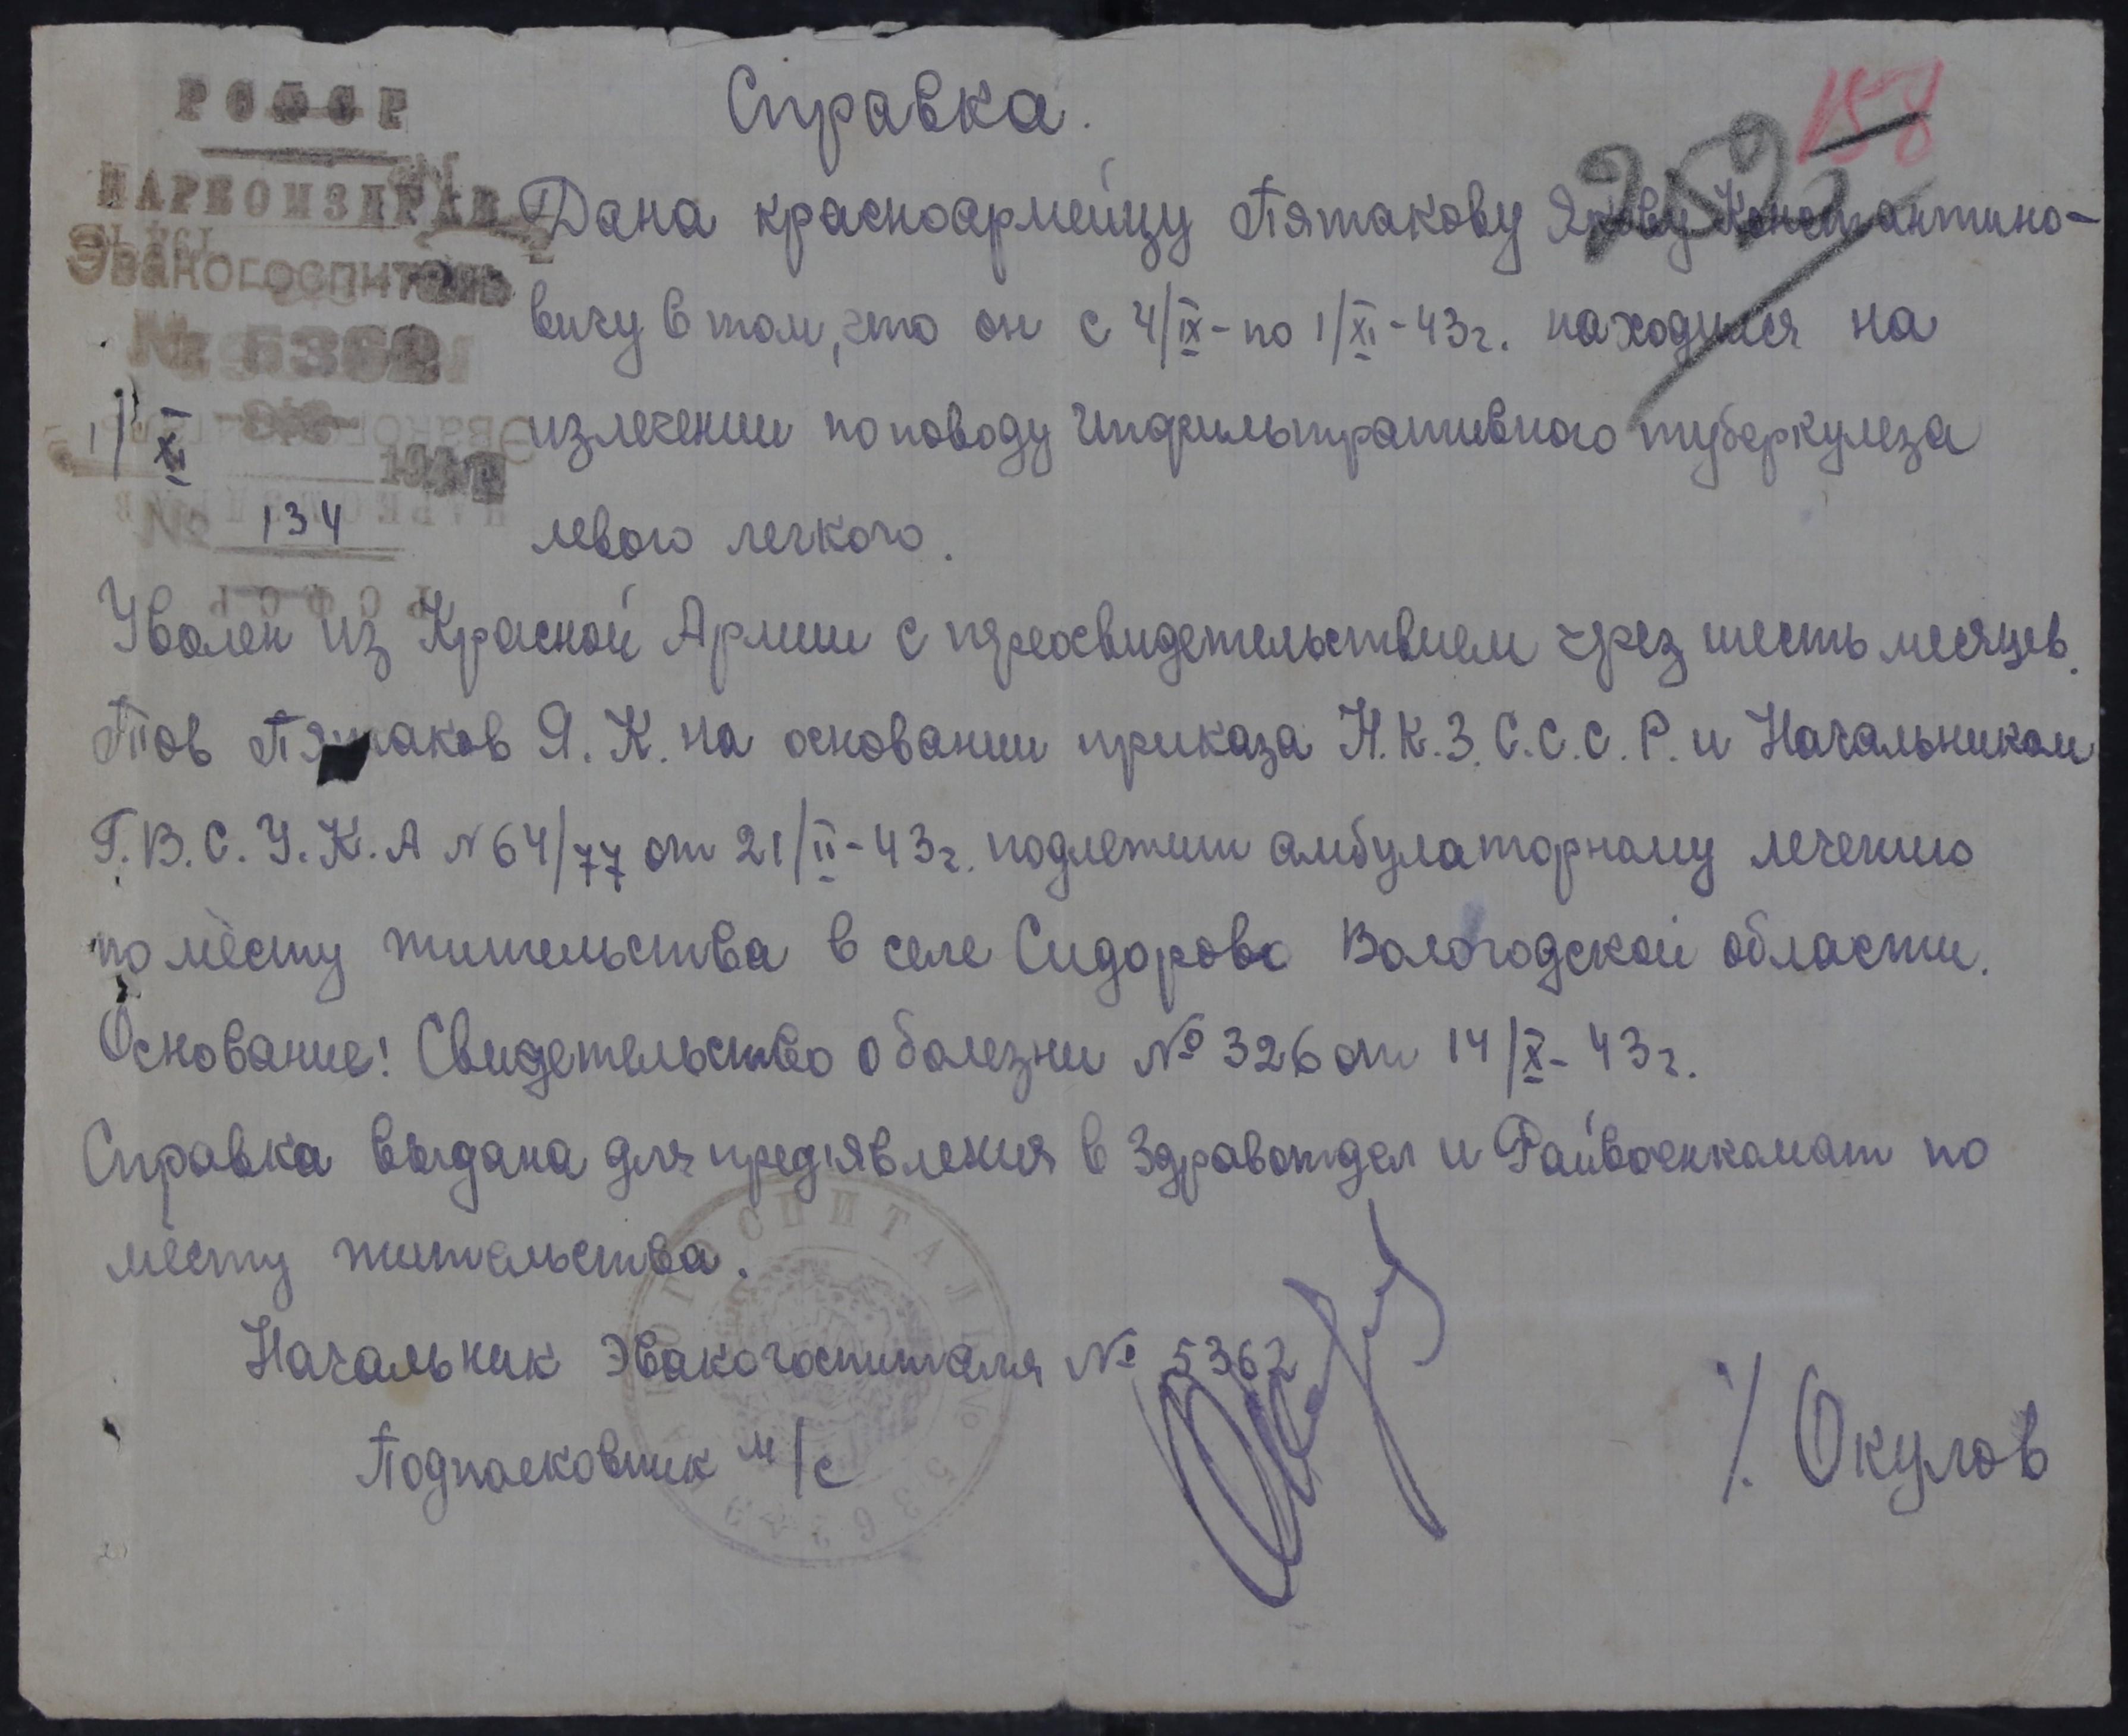 РСФСР
НАРКОМЗДРАВ
Эвакогоспиталь
№ 5362
1/XI
№ 134
158
252
Справка.
Дана красноармейцу Пятакову Якову Константино-
вичу в том, что он с 4/IX - по 1/XI - 43г. находился на
излечении по поводу инфильтративного туберкулеза
левого легкого.
Уволен из Красной Армии с переосвидетельствием через шесть месяцев.
Тов Пятаков Я. К. на основании приказа Н.К.З. С.С.С.Р. и Начальником
Г.В.С.У.К.А N 64/77 от 21/II - 43г. подлежит амбулаторному лечению
по месту жительства в селе Сидорово Вологодской области.
Основание! Свидетельство о болезни № 326 от 14/X - 43г.
Справка выдана для пред'явления в Здравотдел и Райвоенкомат по
месту жительства.
Начальник Эвакогоспиталя № 5362
Подполковник м/с
/. Окулов
ЭВАКОГОСПИТАЛЬ № 5362